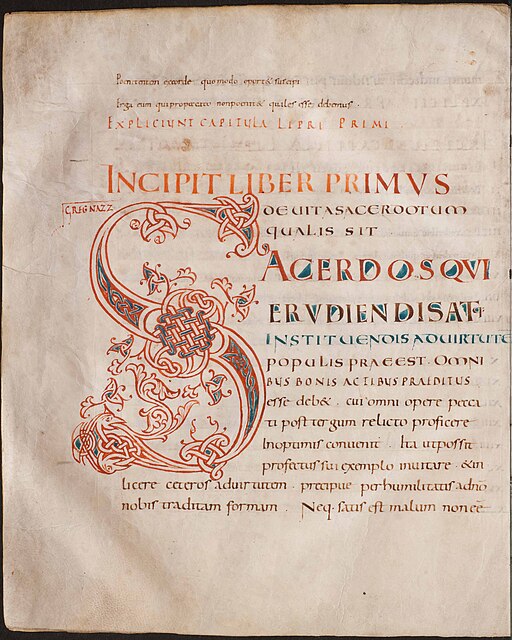 Penitentem ex corde · quomodo oportet suscipi
Erga eum qui properare non potest & quales esse debemus ·
EXPLICIUNT CAPITULA LIBRI PRIMI
INCIPIT LIBER PRIMVS
GREG NAZZ
DE UITA SACERDOTUM
QUALIS SIT ·
SACERDOS QVI
ERVDIENDIS AT
INSTITUENDIS AD UIRTUTĒ
POPULIS PRAEEST · OMNI
BUS BONIS ACTIBUS PRAEDITUS
esse deb& , cui omni opere pecca
ti post tergum relicto proficere
In optimis conuenit · Ita ut possit
profectus sui exemplo inuitare · & in
licere ceteros ad uirtutem · precipue per humilitatis a dn̄o
nobis traditam formam · Neq· satis est malum non eē